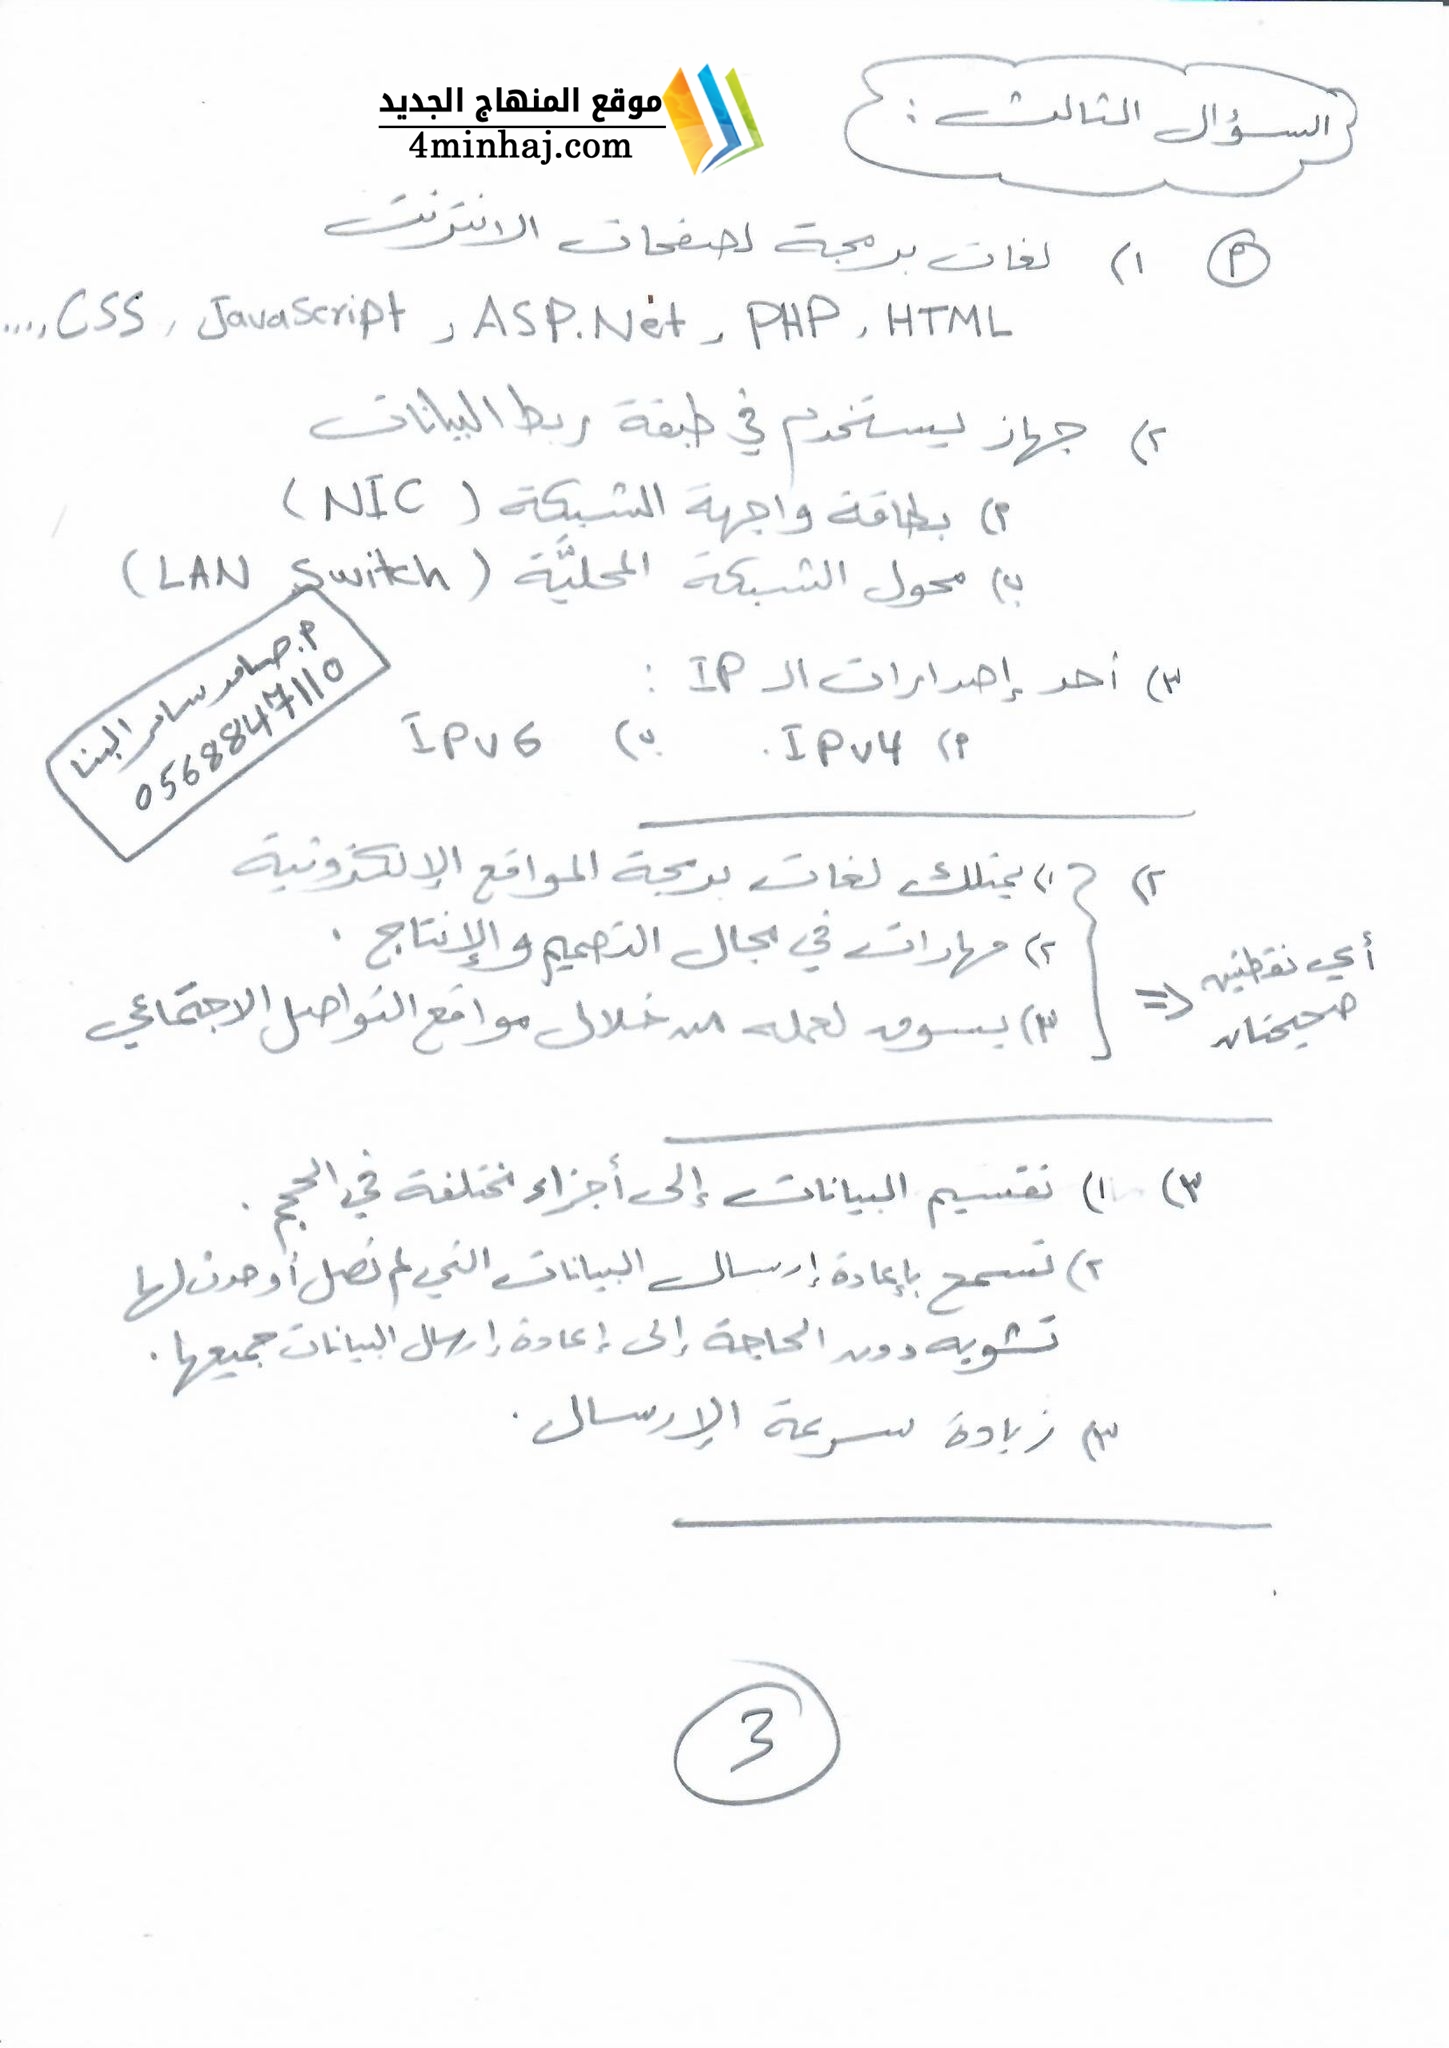 موقع المنهاج الجديد
4minhaj.com
السؤال الثالث :
م ١) لغات برمجة لصفحات الانترنت
HTML , PHP , ASP.Net , JavaScript , CSS , ...
٢) جهاز يستخدم في طبقة ربط البيانات
م) بطاقة واجهة الشبكة ( NIC )
ب) محول الشبكة المحليَّة ( LAN Switch )
م. صامد سامر البنا
0568847110
٣) أحد إصدارات الـ IP :
م) IPv4 . ب) IPv6
٢) ١) يمتلك لغات برمجة المواقع الإلكترونية
٢) مهارات في مجال التصميم والإنتاج .
٣) يسوق لعمله من خلال مواقع التواصل الاجتماعي
أي نقطتين
صحيحتان
٣) ١) تقسيم البيانات إلى أجزاء مختلفة في الحجم .
٢) تسمح بإعادة إرسال البيانات التي لم تصل أو حدث لها
تشويه دون الحاجة إلى إعادة إرسال البيانات جميعها .
٣) زيادة سرعة الإرسال .
3